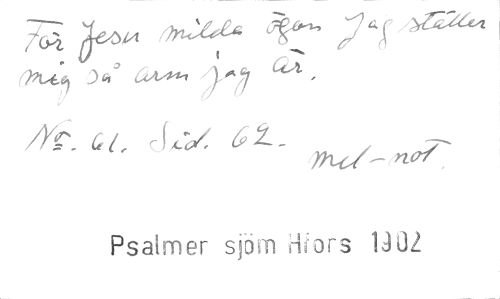 För Jesu milda ögon jag ställer
mig så arm jag är.
No. 61. Sid. 62.
mel-not.
Psalmer sjöm Hfors 1902